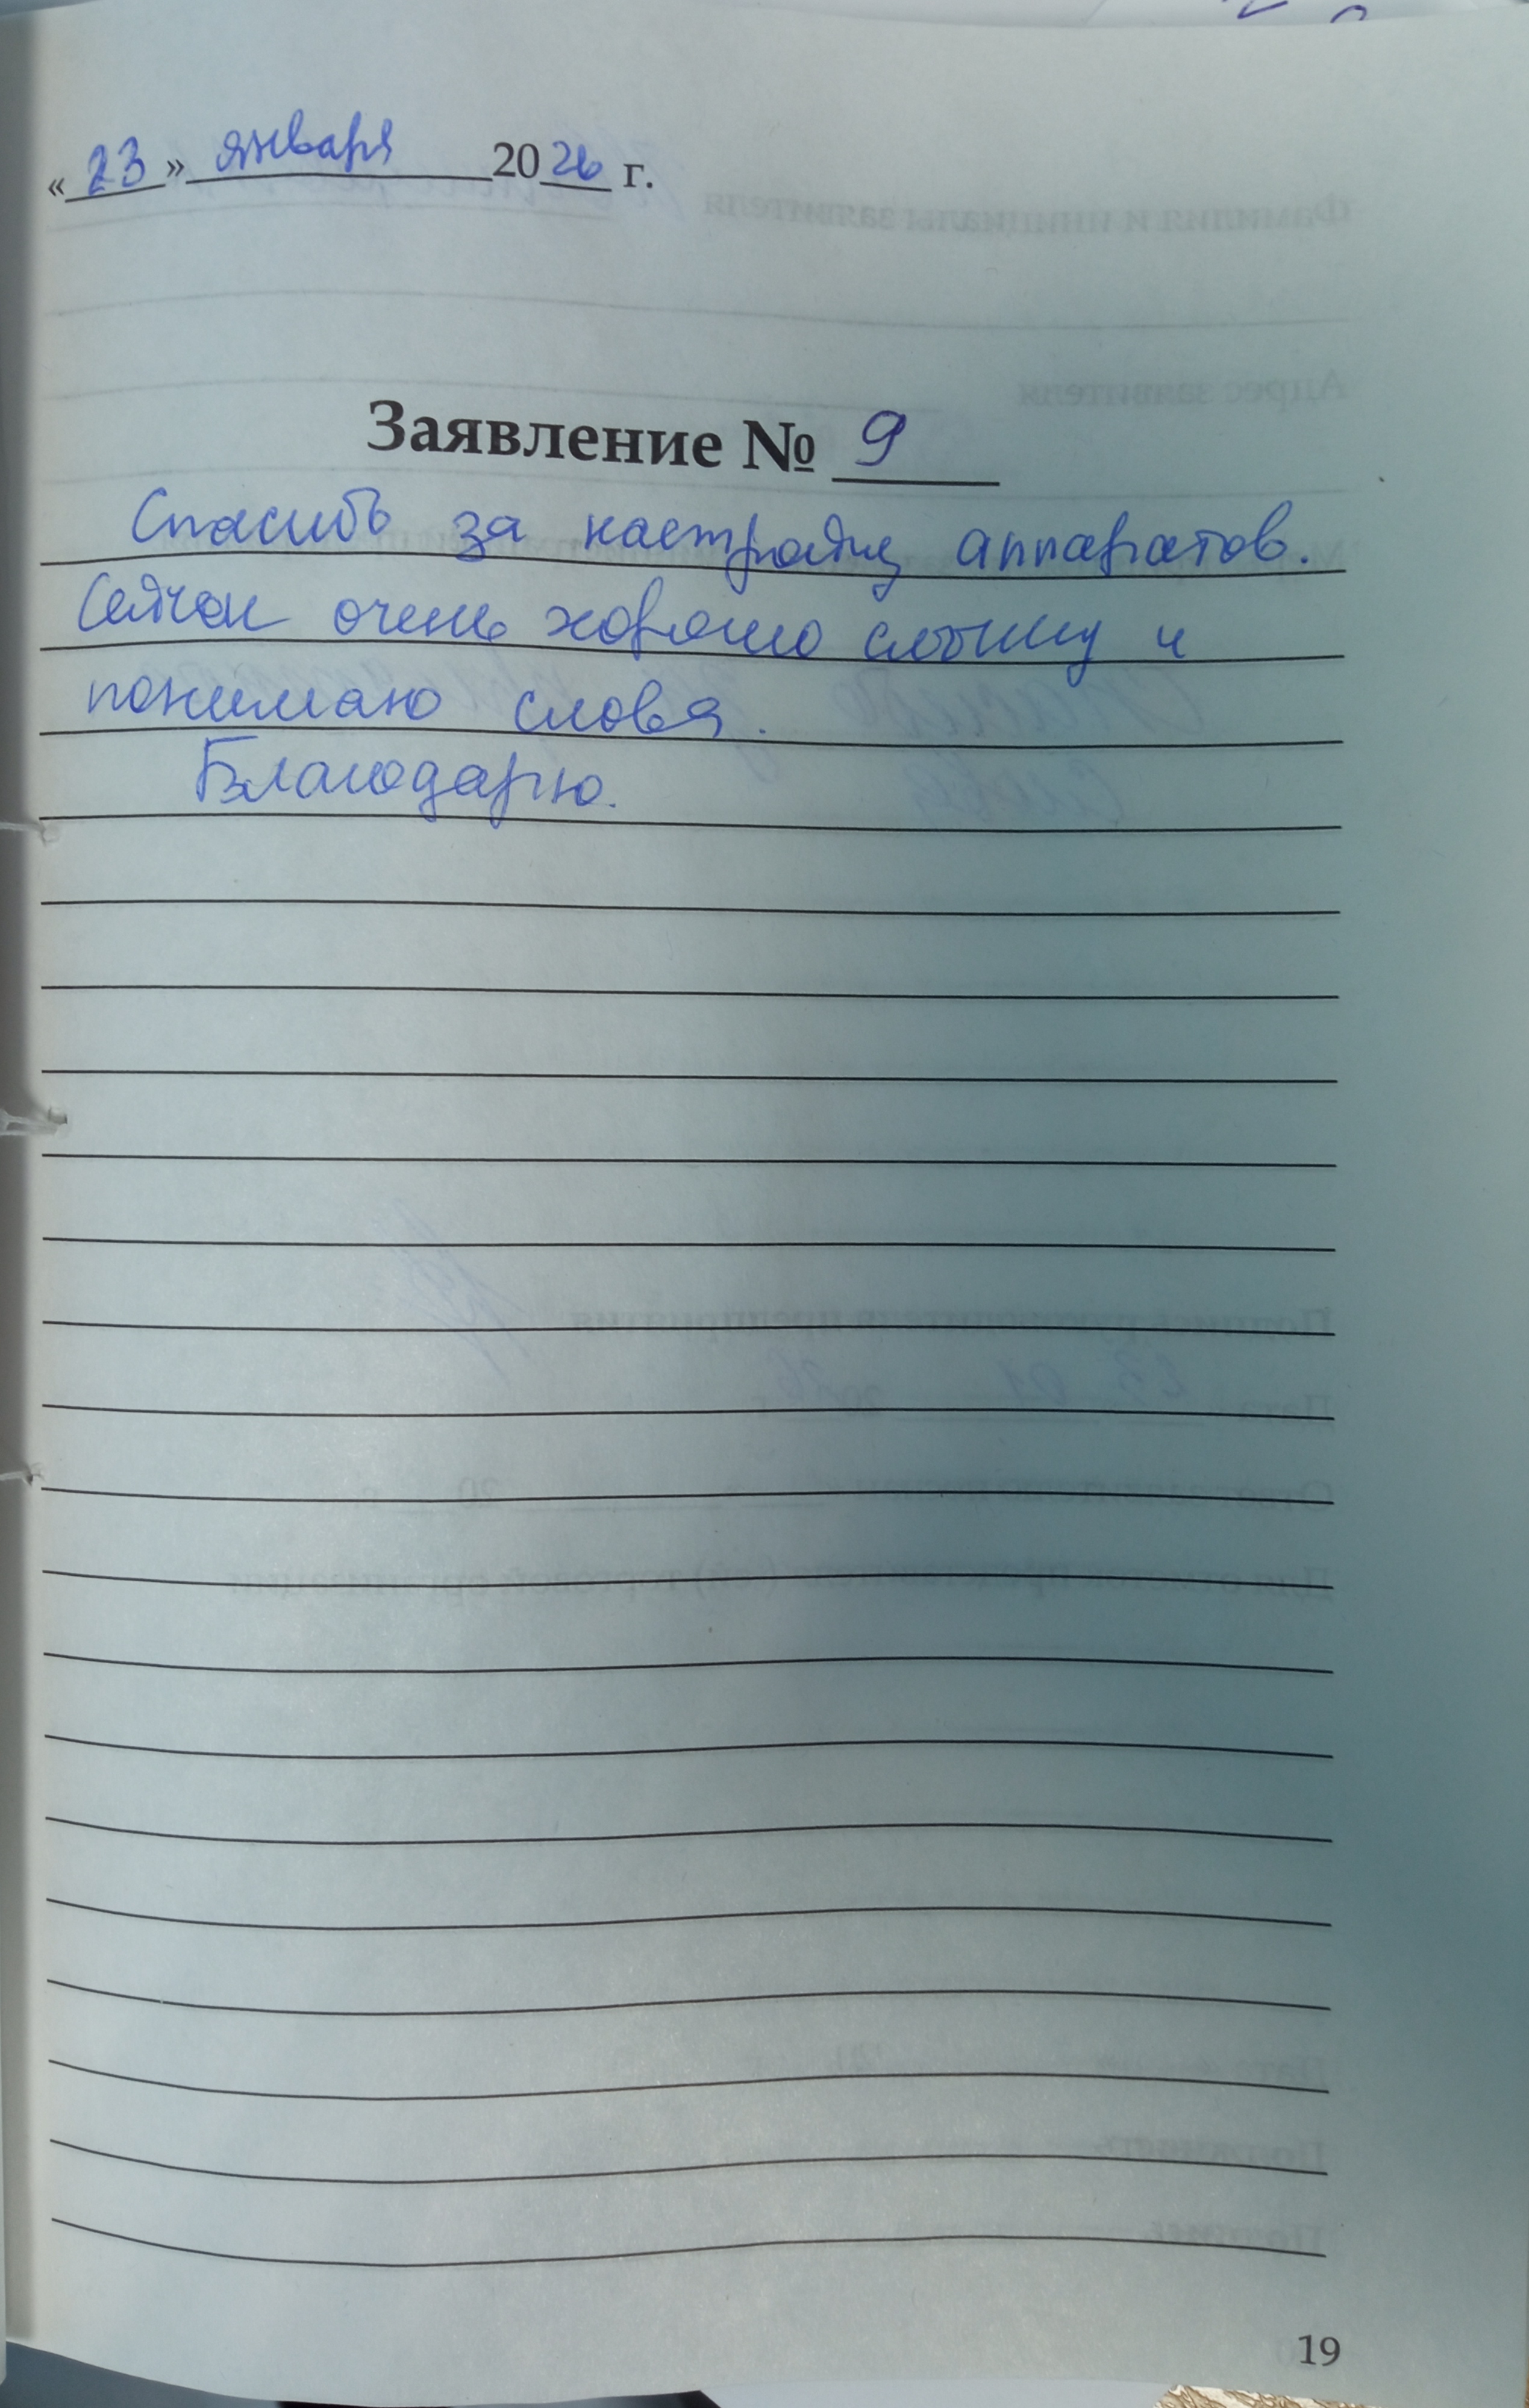 «23» января 2026 г.
Заявление № 9
Спасибо за настройку аппаратов.
Сейчас очень хорошо слышу и
понимаю слова.
Благодарю.
19